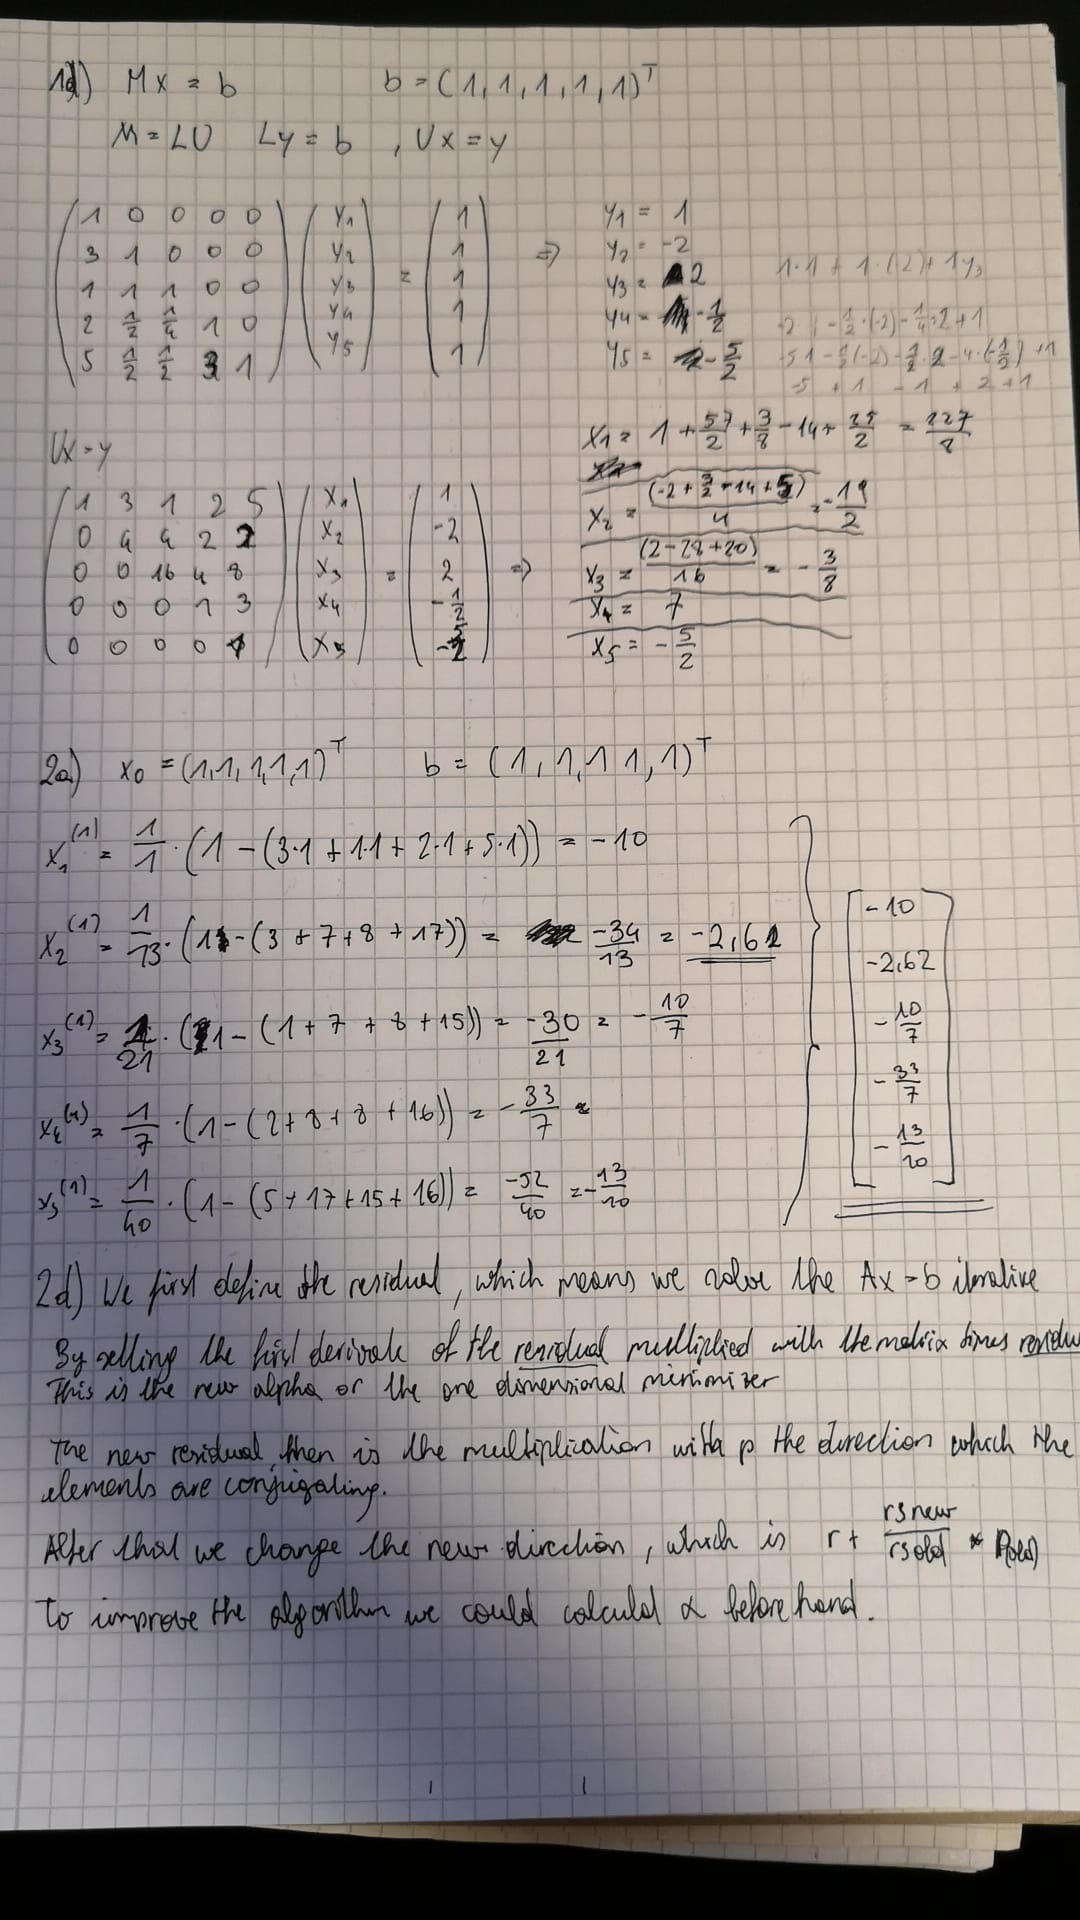 1d) Mx = b b = (1,1,1,1,1)^T
M = LU Ly = b , Ux = y
1 0 0 0 0 y1 1 y1 = 1
3 1 0 0 0 y2 1 y2 = -2
1 1 1 0 0 y3 = 1 => y3 = 2 1·1 + 1·(-2) + 1y3
2 1/2 1/4 1 0 y4 1 y4 = -1/2 -2 -1/2·(-2) -1/4·2 +1
5 1/2 1/2 3 1 y5 1 y5 = -5/2
-5 +1 -1 +2 +1
Ux = y x1 = 1 + 57/2 + 3/8 - 14 + 25/2 = 227/8
1 3 1 2 5 x1 1
0 4 4 2 2 x2 -2 x2 = (-2 + 3/2 - 14 + 5)/4 = -19/2
0 0 16 4 8 x3 = 2 => x3 = (2-28+20)/16 = -3/8
0 0 0 1 3 x4 -1/2 x4 = 7
0 0 0 0 1 x5 -5/2 x5 = -5/2
2a) x0 = (1,1,1,1,1)^T b = (1,1,1 1,1)^T
x1^(1) = 1/1 · (1 - (3·1 + 1·1 + 2·1 + 5·1)) = -10
x2^(1) = 1/13 · (1 - (3 + 7 + 8 + 17)) = -34/13 = -2,62
x3^(1) = 1/21 · (1 - (1 + 7 + 8 + 15)) = -30/21 = -10/7
x4^(1) = 1/7 · (1 - (2 + 8 + 8 + 16)) = -33/7 =
x5^(1) = 1/40 · (1 - (5 + 17 + 15 + 16)) = -52/40 = -13/10
-10
-2,62
-10/7
-33/7
-13/10
2d) We first define the residual, which means we solve the Ax = b iterative
By setting the first derivate of the residual multiplied with the matrix times residu
This is the new alpha or the one dimensional minimizer
The new residual then is the multiplication with p the direction which the
elements are conjugating.
After that we change the new direction, which is r + rsnew/rsold * p(old)
To improve the algorithm we could calculat α beforehand.